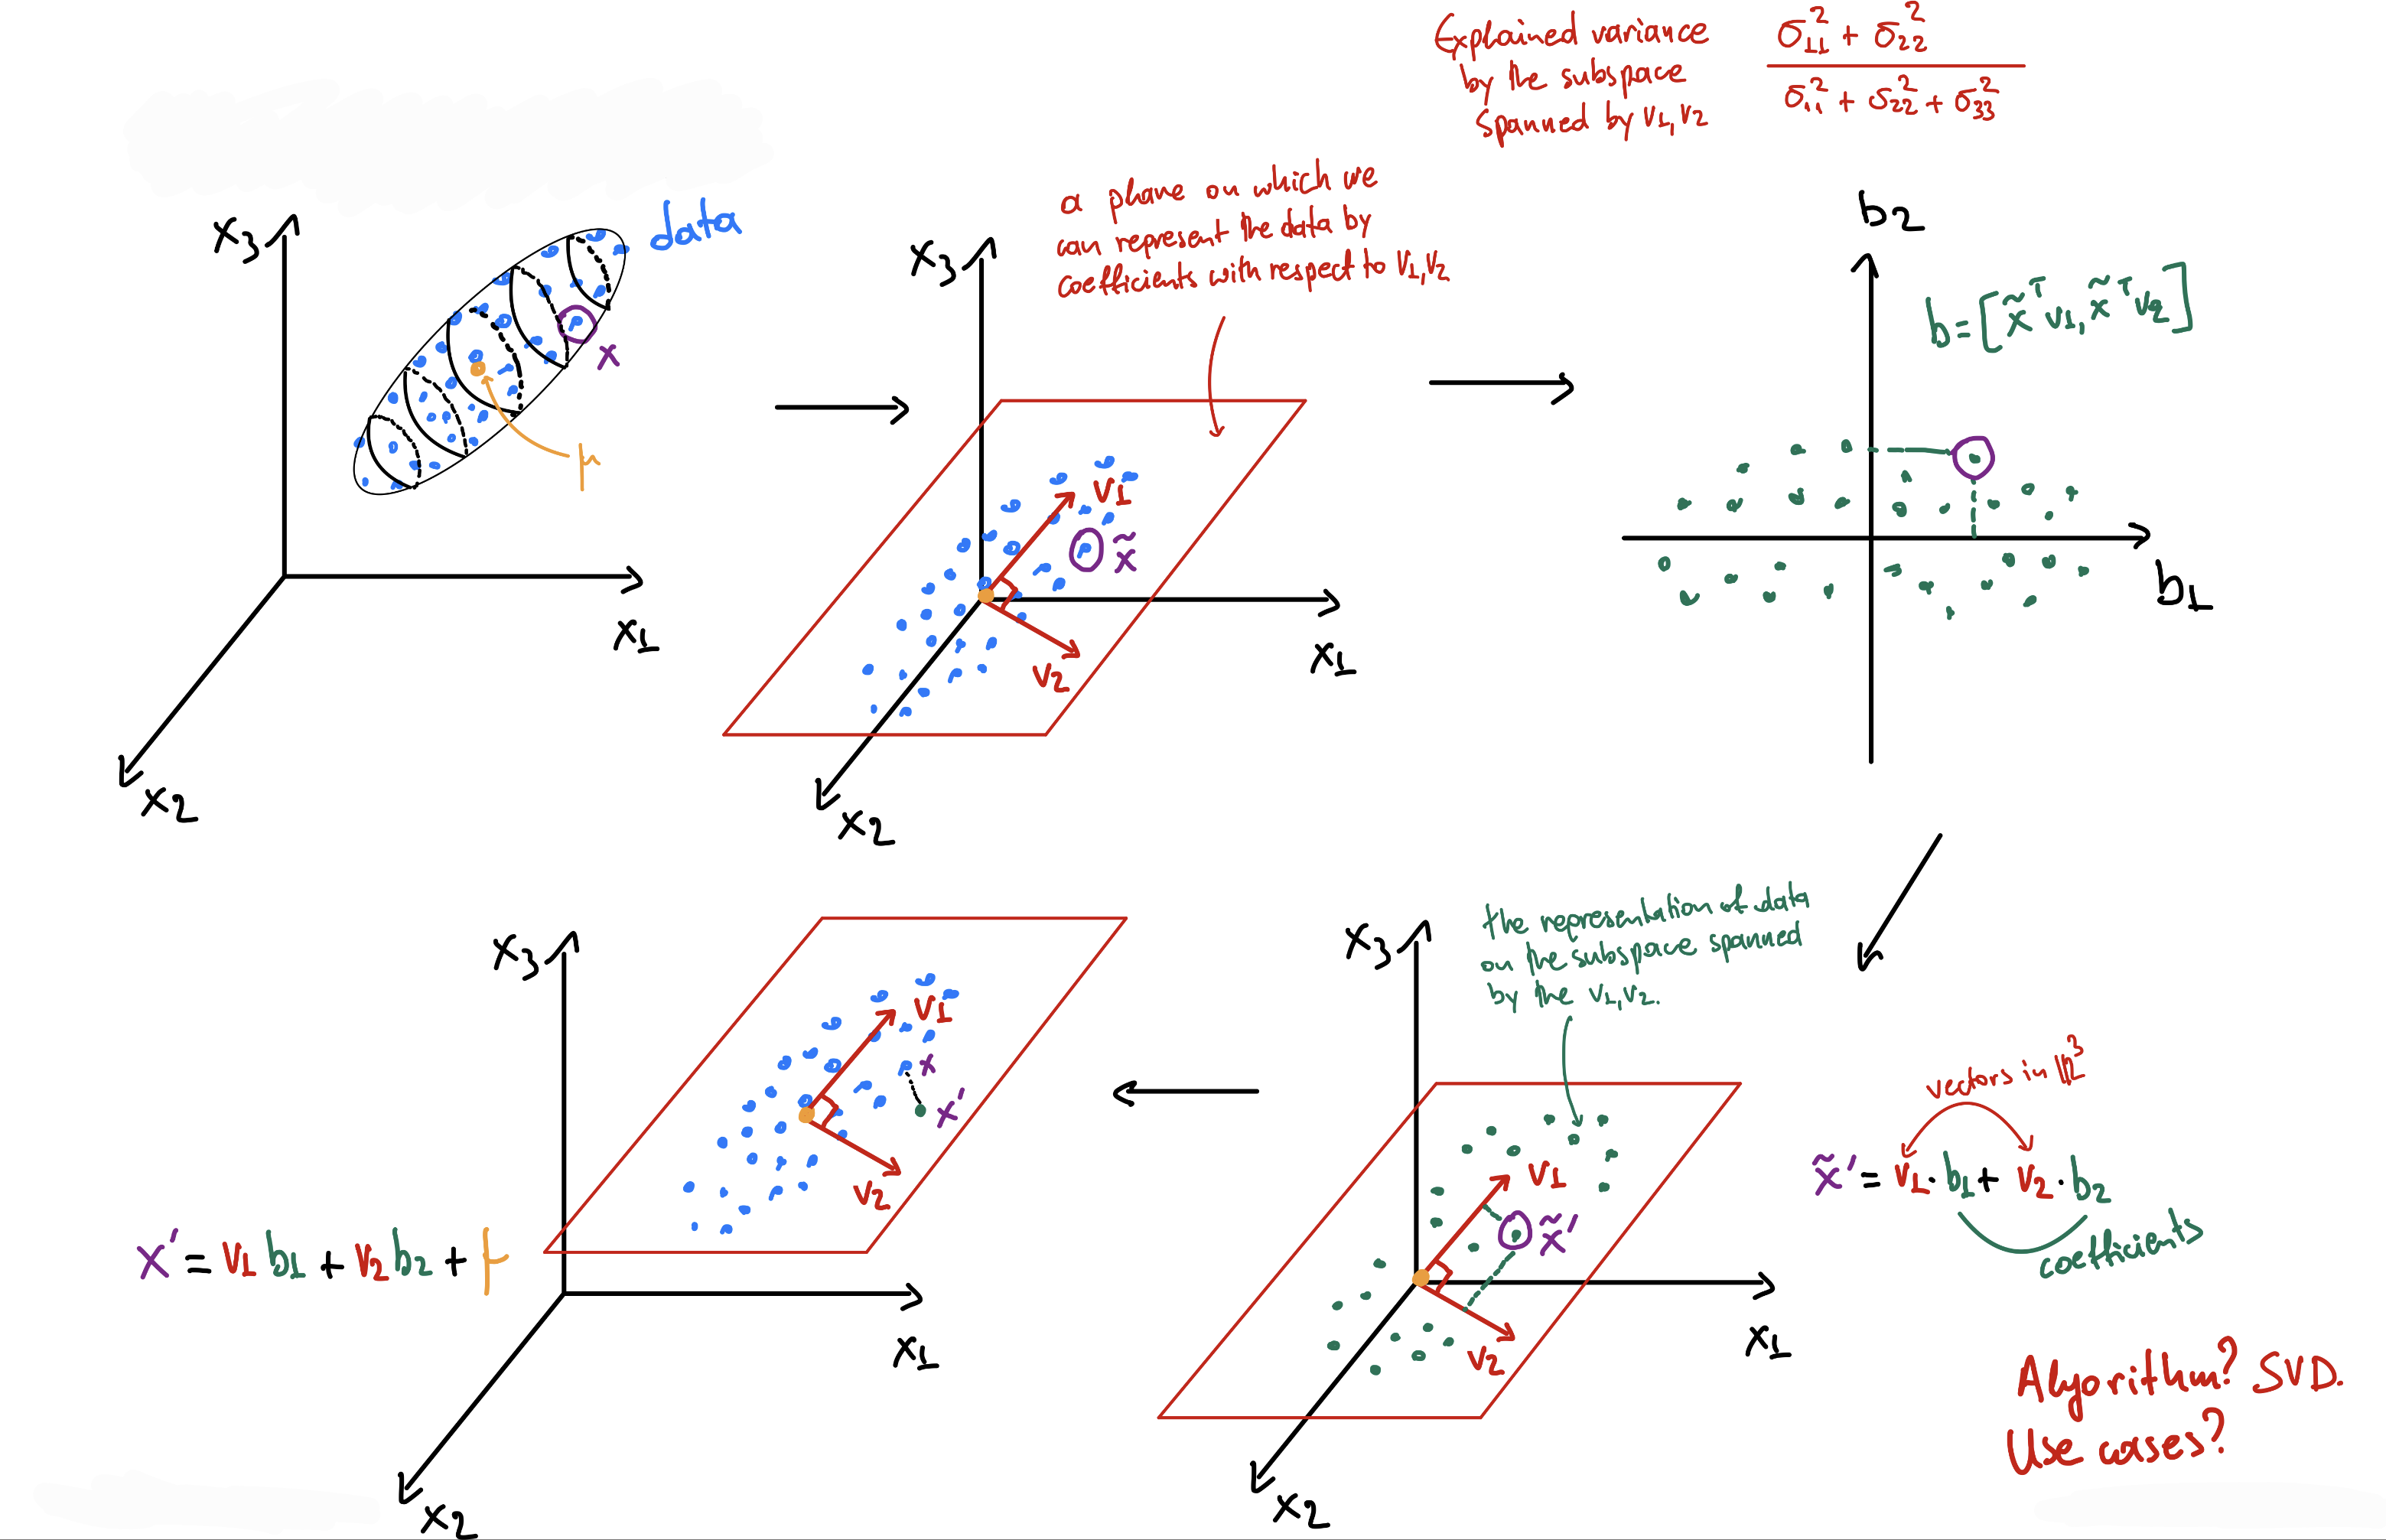 Explained variance
by the subspace
spanned by v1, v2
σ²11 + σ²22
σ²11 + σ²22 + σ²33
x3
data
x
μ
x1
x2
a plane on which we
can represent the data by
coefficients with respect to v1, v2
x3
v1
x̃
v2
x1
x2
b2
b = [x̃ᵀv1, x̃ᵀv2]
b1
the representation of data
on the subspace spanned
by the v1, v2.
x3
v1
x̃'
v2
x1
x2
vectors in ℝ³
x̃' = v1·b1 + v2·b2
coefficients
x3
v1
x
x'
v2
x1
x2
x' = v1 b1 + v2 b2 + μ
Algorithm? SVD.
Use cases?